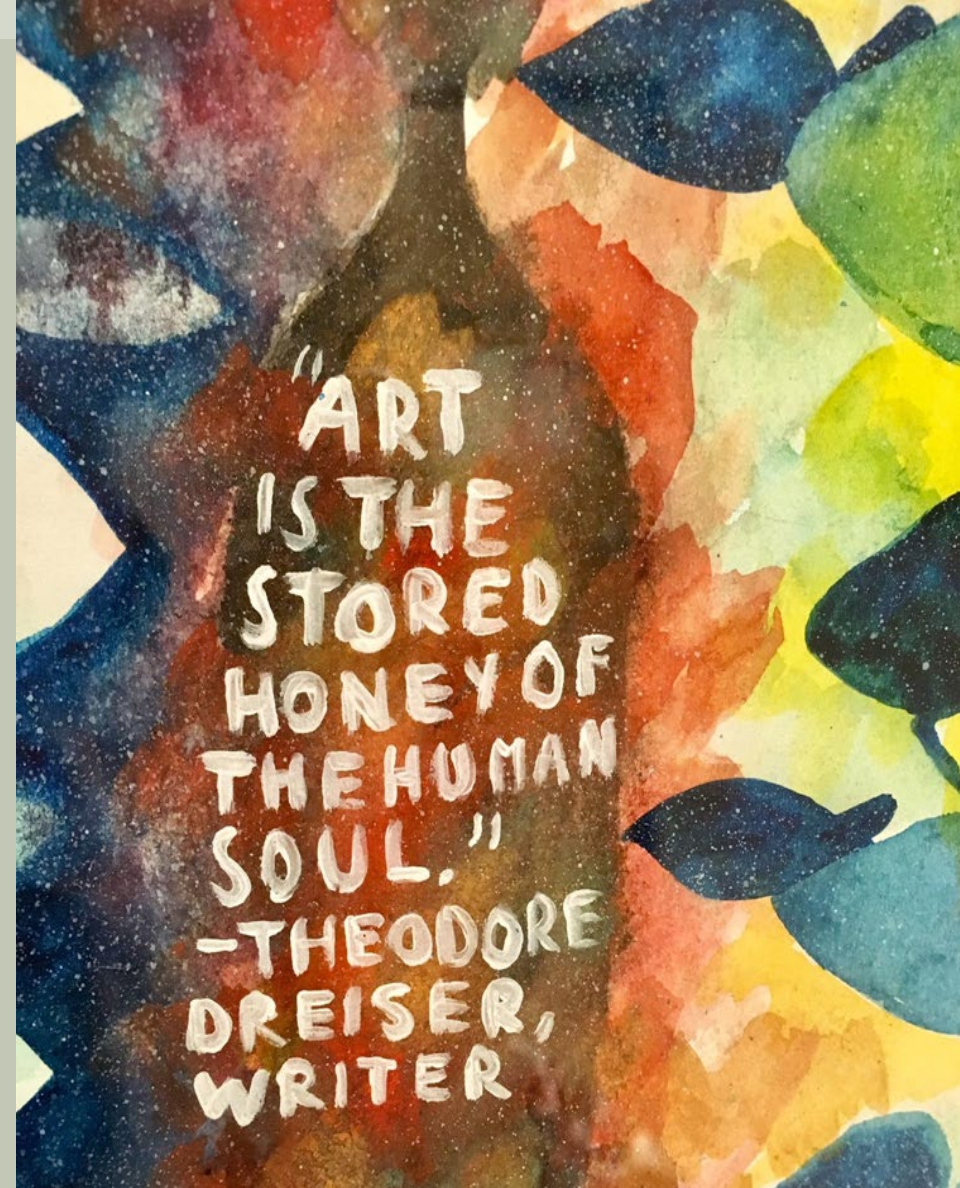 "ART
IS THE
STORED
HONEY OF
THE HUMAN
SOUL."
-THEODORE
DREISER,
WRITER